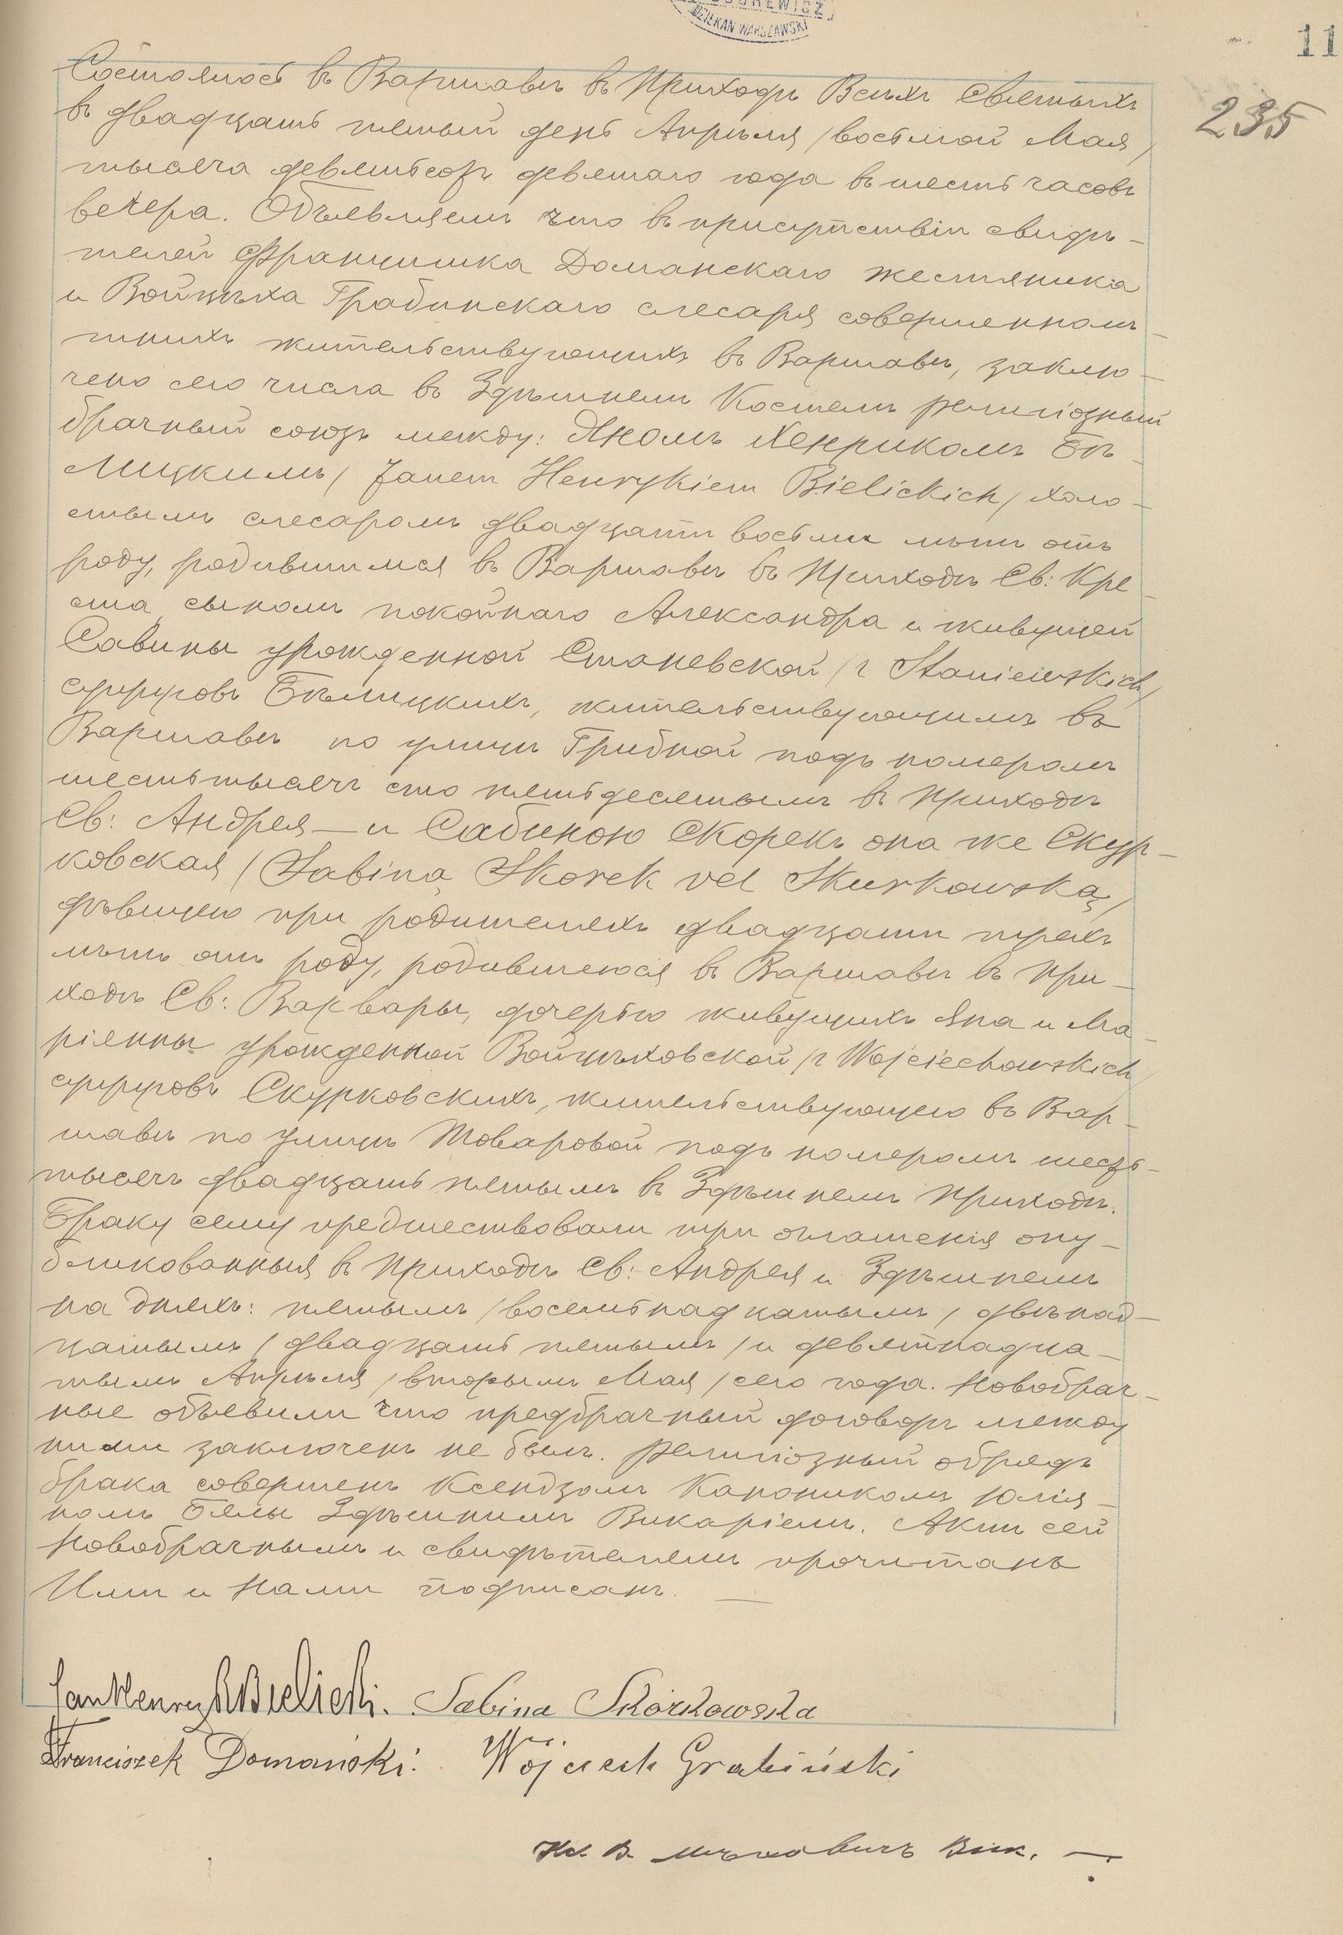 DZIEKAN WARSZAWSKI
11
235
Состоялось въ Варшавѣ въ Приходѣ Всѣхъ Святыхъ
въ двадцать пятый день Апрѣля /восьмой Мая/
тысяча девятьсотъ девятаго года въ шесть часовъ
вечера. Объявляемъ что въ присутствіи свидѣ-
телей Францишка Доманскаго жестяника
и Войцѣха Грабинскаго слесаря совершеннолѣ-
тнихъ жительствующихъ въ Варшавѣ, заклю-
чено сего числа въ Здѣшнемъ Костелѣ религіозный
брачный союзъ между: Яномъ Хенрикомъ Бѣ-
лицкимъ / Janem Henrykiem Bielickich / холо-
стымъ слесаромъ двадцати восьми лѣтъ отъ
роду, родившимся въ Варшавѣ въ Приходѣ Св: Кре-
ста, сыномъ покойнаго Александра и живущей
Савины урожденной Станевской /z Staniewskich/
супруговъ Бѣлицкихъ, жительствующимъ въ
Варшавѣ по улицѣ Грибной подъ номеромъ
шестьтысячъ сто пятьдесятымъ въ Приходѣ
Св: Андрея — и Сабиною Скорекъ она же Скур-
ковская / Sabiną Skorek vel Skurkowską/
дѣвицею при родителяхъ двадцати трехъ
лѣтъ отъ роду, родившеюся въ Варшавѣ въ При-
ходѣ Св: Варвары, дочерью живущихъ Яна и Ма-
ріянны урожденной Войцѣховской /z Wojciechowskich/
супруговъ Скурковскихъ, жительствующею въ Вар-
шавѣ по улицѣ Товаровой подъ номеромъ шесть-
тысячъ двадцать пятымъ въ Здѣшнемъ Приходѣ.
Браку сему предшествовали три оглашенія опу-
бликованныя въ Приходѣ Св: Андрея и Здѣшнемъ
на дняхъ: пятымъ /восемнадцатымъ/, двѣнад-
цатымъ / двадцать пятымъ / и девятнадца-
тымъ Апрѣля / вторымъ Мая / сего года. Новобрач-
ные объявили что предбрачный договоръ между
ними заключенъ не былъ. Религіозный обрядъ
брака совершенъ Ксендзомъ Каноникомъ Юлія-
номъ Бялы Здѣшнимъ Викаріемъ. Актъ сей
Новобрачнымъ и свидѣтелямъ прочитанъ
Ими и Нами подписанъ. —
Jan Henryk Bielicki. Sabina Skórkowska
Franciszek Domański. Wojciech Grabiński
Кс. В. Вик. —